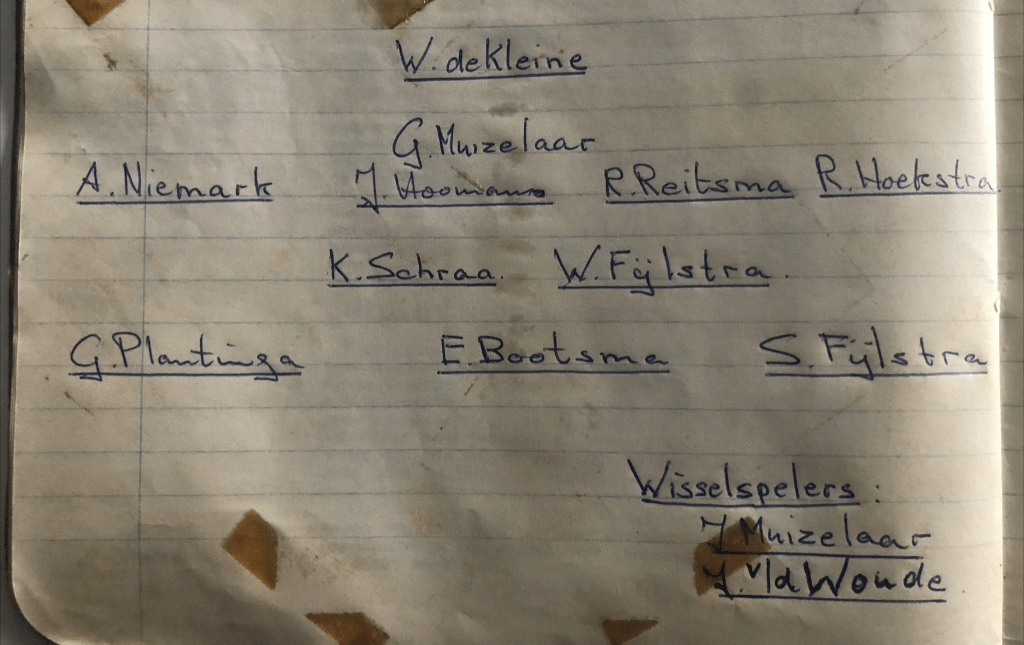 W. de Kleine
G. Muizelaar
A. Niemark J. Hoomans R. Reitsma R. Hoekstra
K. Schraa. W. Fijlstra.
G. Plantinga E. Bootsma S. Fijlstra
Wisselspelers:
J Muizelaar
J. v/d Woude